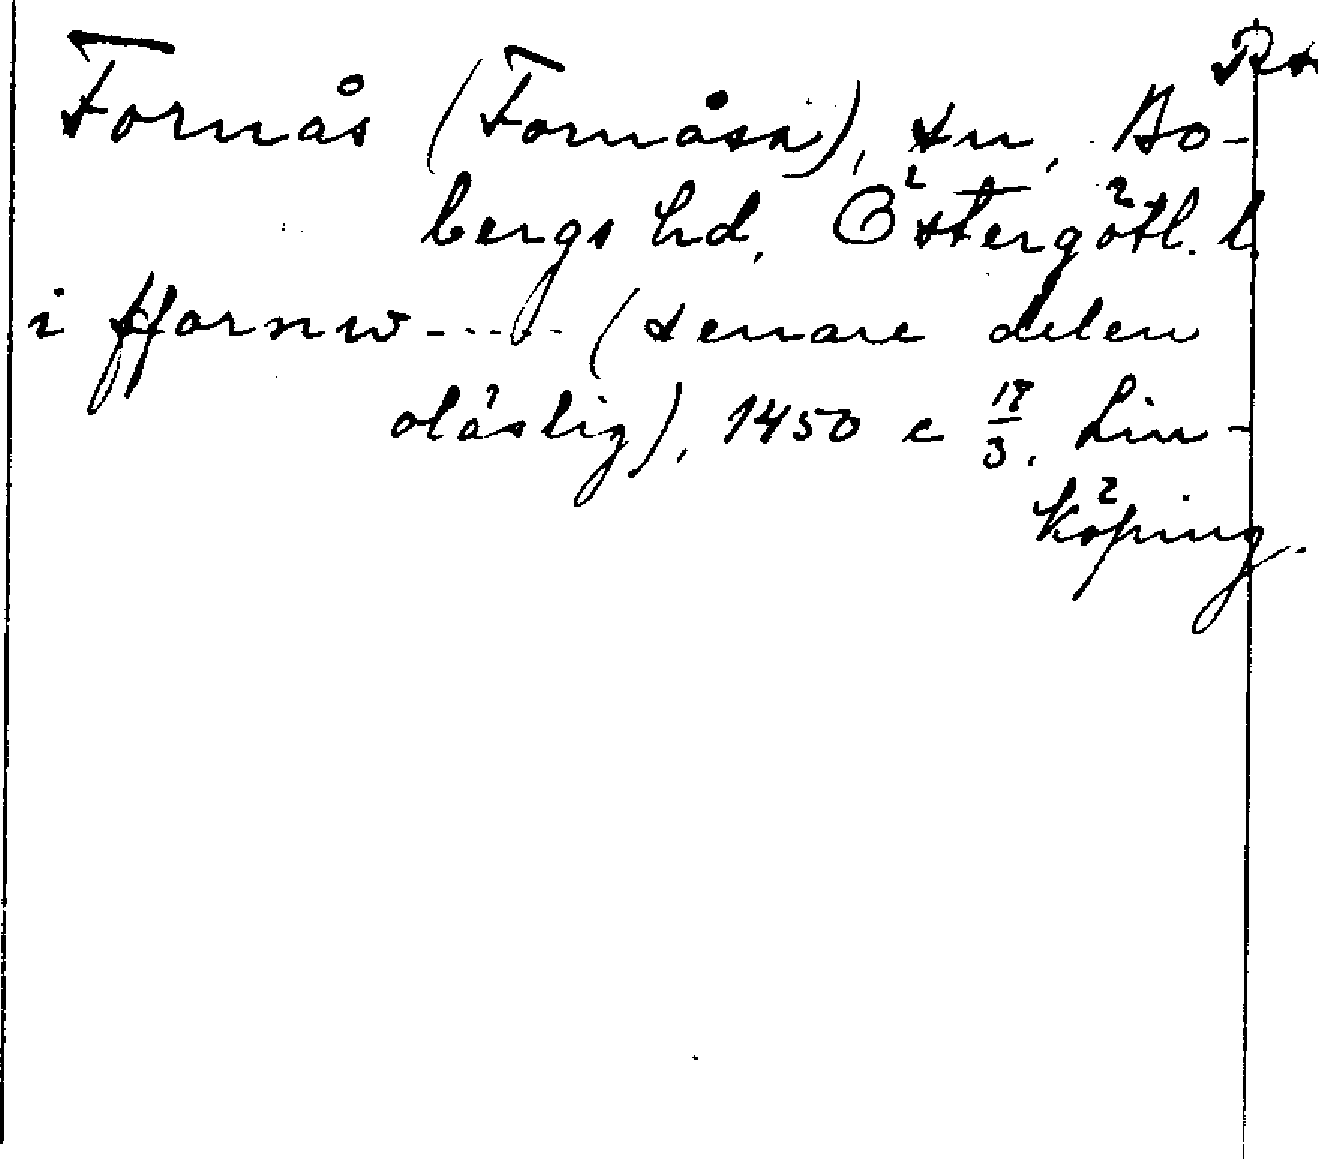 Fornås (Fornåsa), sn, Bo-
bergs hd, Östergötl. l.
i ffornw----- (senare delen
oläslig), 1450 c 17/3. Lin-
köping.